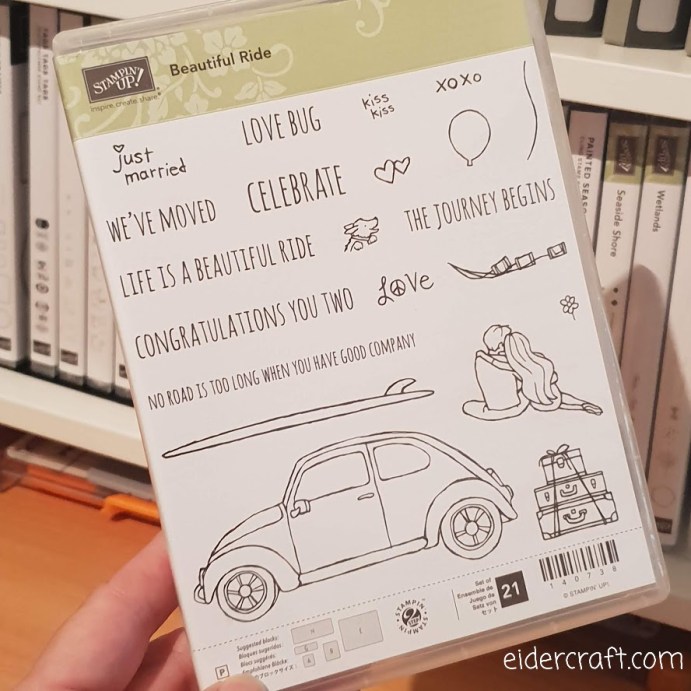 STAMPIN' UP!
inspire.create.share.
Beautiful Ride
just
married
LOVE BUG
kiss
kiss
XOXO
WE'VE MOVED
CELEBRATE
THE JOURNEY BEGINS
LIFE IS A BEAUTIFUL RIDE
CONGRATULATIONS YOU TWO
Love
NO ROAD IS TOO LONG WHEN YOU HAVE GOOD COMPANY
Suggested blocks:
Bloques sugeridos:
Blocs suggérés:
Empfohlene Blöcke
P
H
E
A
B
Set of
Ensemble de
Juego de
Satz von
セット
21
140738
© STAMPIN' UP!
PAINTED SEAS
Seaside Shore
Wetlands
eidercraft.com